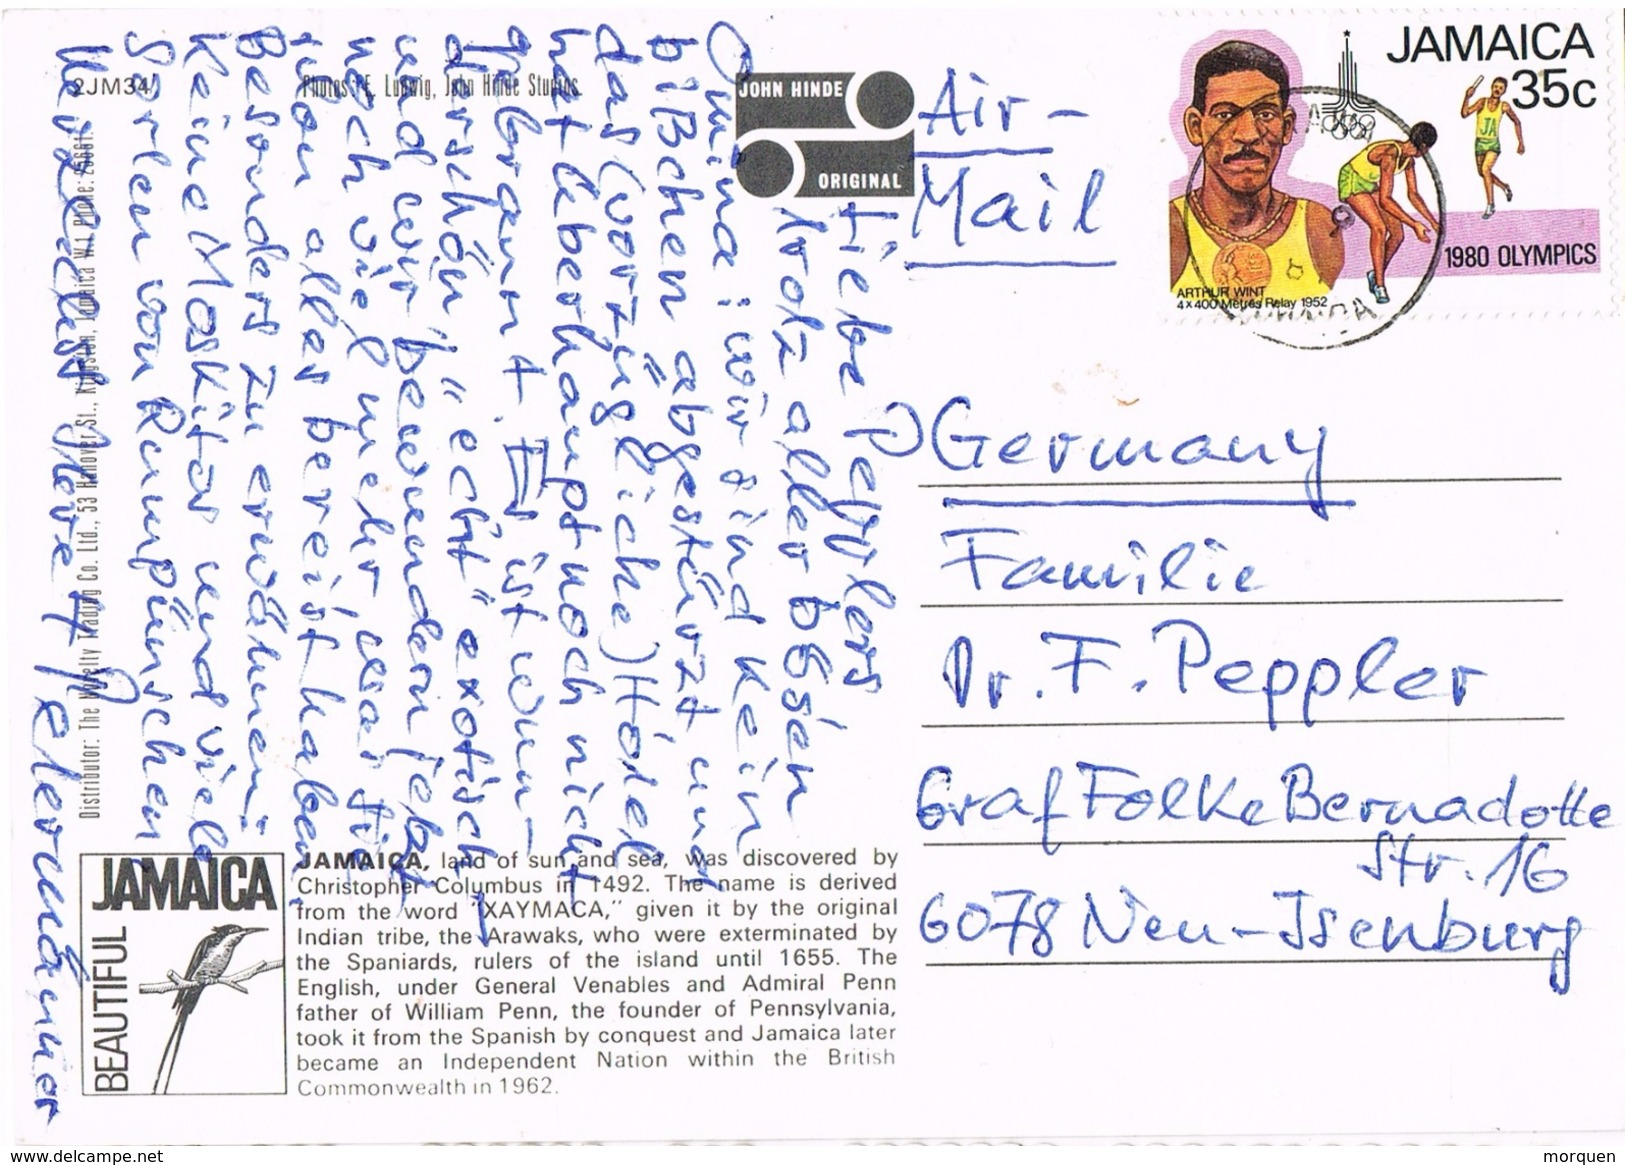 JAMAICA
35c
1980 OLYMPICS
ARTHUR WINT
4x400 Metres Relay 1952
JAMAICA
2JM34
Photos: E. Ludwig, John Hinde Studios.
JOHN HINDE
ORIGINAL
Air-
Mail
Germany
Familie
Dr. F. Peppler
Graf Folke Bernadotte
Str. 16
6078 Neu-Isenburg
Liebe Pepplers
trotz aller bösen
Omina: wir sind kein
bißchen abgestürzt und
das (vorzügliche) Hotel
hat überhaupt noch nicht
gebrannt. Es ist wun-
derschön, "echt" exotisch
und wir bewundern jetzt
noch viel mehr, was Sie
schon alles bereist haben.
Besonders zu erwähnen:
Keine Moskitos und viele
Sorten von Rumpünschen
Herzlichst Ihre Petermänner
Distributor: The Novelty Trading Co. Ltd., 53 Hanover St., Kingston, Jamaica W.I. Phone: 25661.
BEAUTIFUL
JAMAICA
JAMAICA, land of sun and sea, was discovered by
Christopher Columbus in 1492. The name is derived
from the word "XAYMACA," given it by the original
Indian tribe, the Arawaks, who were exterminated by
the Spaniards, rulers of the island until 1655. The
English, under General Venables and Admiral Penn
father of William Penn, the founder of Pennsylvania,
took it from the Spanish by conquest and Jamaica later
became an Independent Nation within the British
Commonwealth in 1962.
www.delcampe.net
morquen